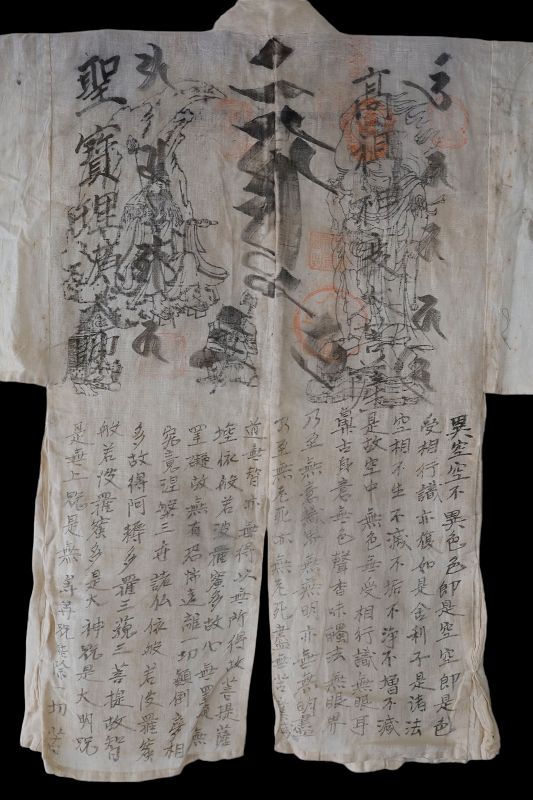 高祖神変大菩薩
聖寶理源大師
異空空不異色色即是空空即是色
受相行識亦復如是舎利子是諸法
空相不生不滅不垢不浄不増不減
是故空中無色無受相行識無眼耳
鼻舌身意無色聲香味觸法無眼界
乃至無意識界無無明亦無無明盡
乃至無老死亦無老死盡無苦集
道無智亦無得以無所得故菩提薩
埵依般若波羅蜜多故心無罣礙無
罣礙故無有恐怖遠離一切顛倒夢相
究竟涅槃三世諸仏依般若波羅蜜
多故得阿耨多羅三藐三菩提故智
般若波羅蜜多是大神呪是大明呪
是無上呪是無等等呪能除一切苦